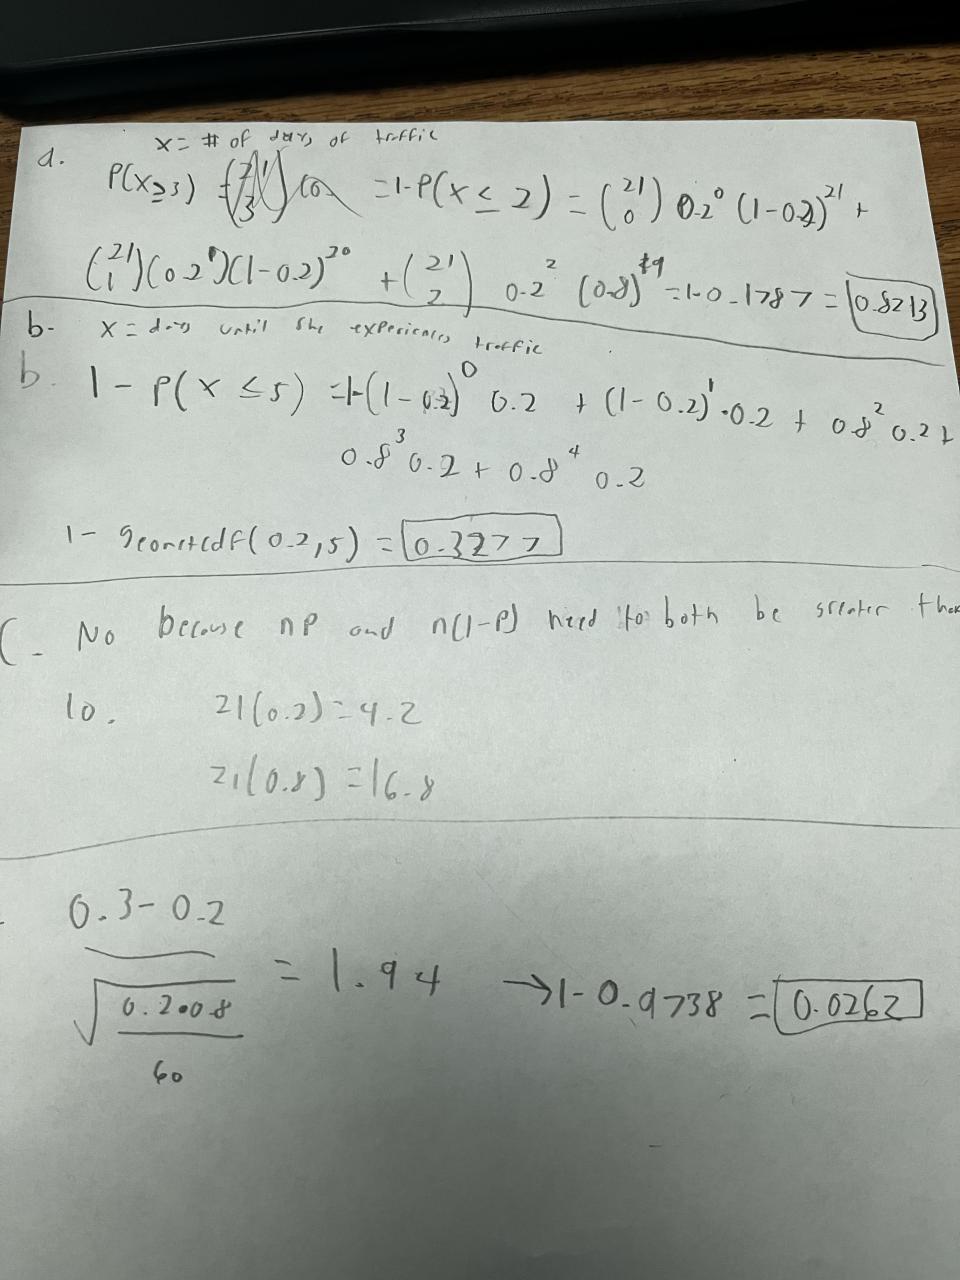 x = # of days of traffic
a. P(x≥3) = 1-P(x ≤ 2) = (21 0) 0.2^0 (1-0.2)^21 +
(21 1)(0.2^1)(1-0.2)^20 + (21 2) 0.2^2 (0.8)^19 = 1-0.1787 = 0.8213
b. x = days until she experiences traffic
b. 1 - P(x ≤ 5) = 1-(1-0.2)^0 0.2 + (1-0.2)^1 · 0.2 + 0.8^2 0.2 +
0.8^3 0.2 + 0.8^4 0.2
1 - geometcdf(0.2,5) = 0.3277
C. No because np and n(1-P) need to both be greater than
10. 21(0.2) = 4.2
21(0.8) = 16.8
0.3 - 0.2 / √(0.2•0.8 / 60) = 1.94 → 1 - 0.9738 = 0.0262